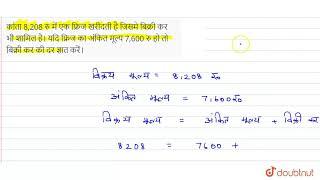 कांता 8,208 रु में एक फ्रिज खरीदती है जिसमे बिक्री कर
भी शामिल है। यदि फ्रिज का अंकित मूल्य 7,600 रु हो तो
बिक्री कर की दर ज्ञात करें।
विक्रय मूल्य = 8,208 रु
अंकित मूल्य = 7,600 रु
विक्रय मूल्य = अंकित मूल्य + बिक्री कर
8208 = 7600 +
doubtnut